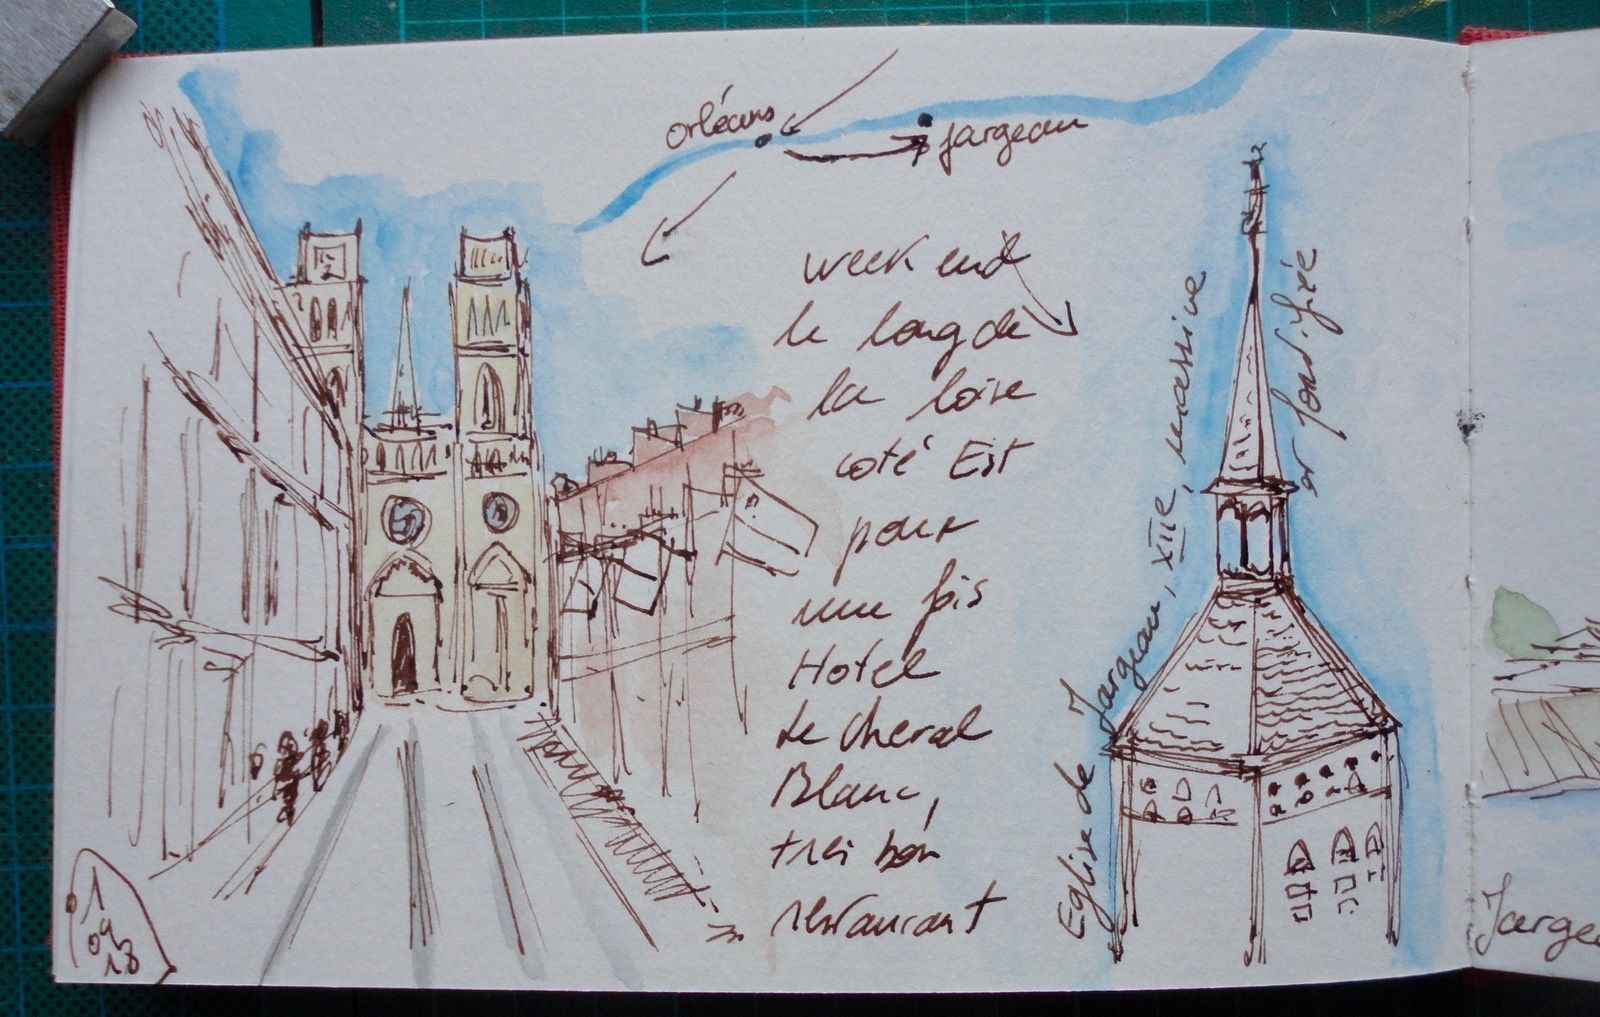 orléans
Jargeau
week end
le long de
la loire
coté Est
pour
une fois
Hotel
Le cheval
Blanc,
très bon
restaurant
Eglise de Jargeau, XIIe, massive
et fortifiée
1
09
18
Jarge